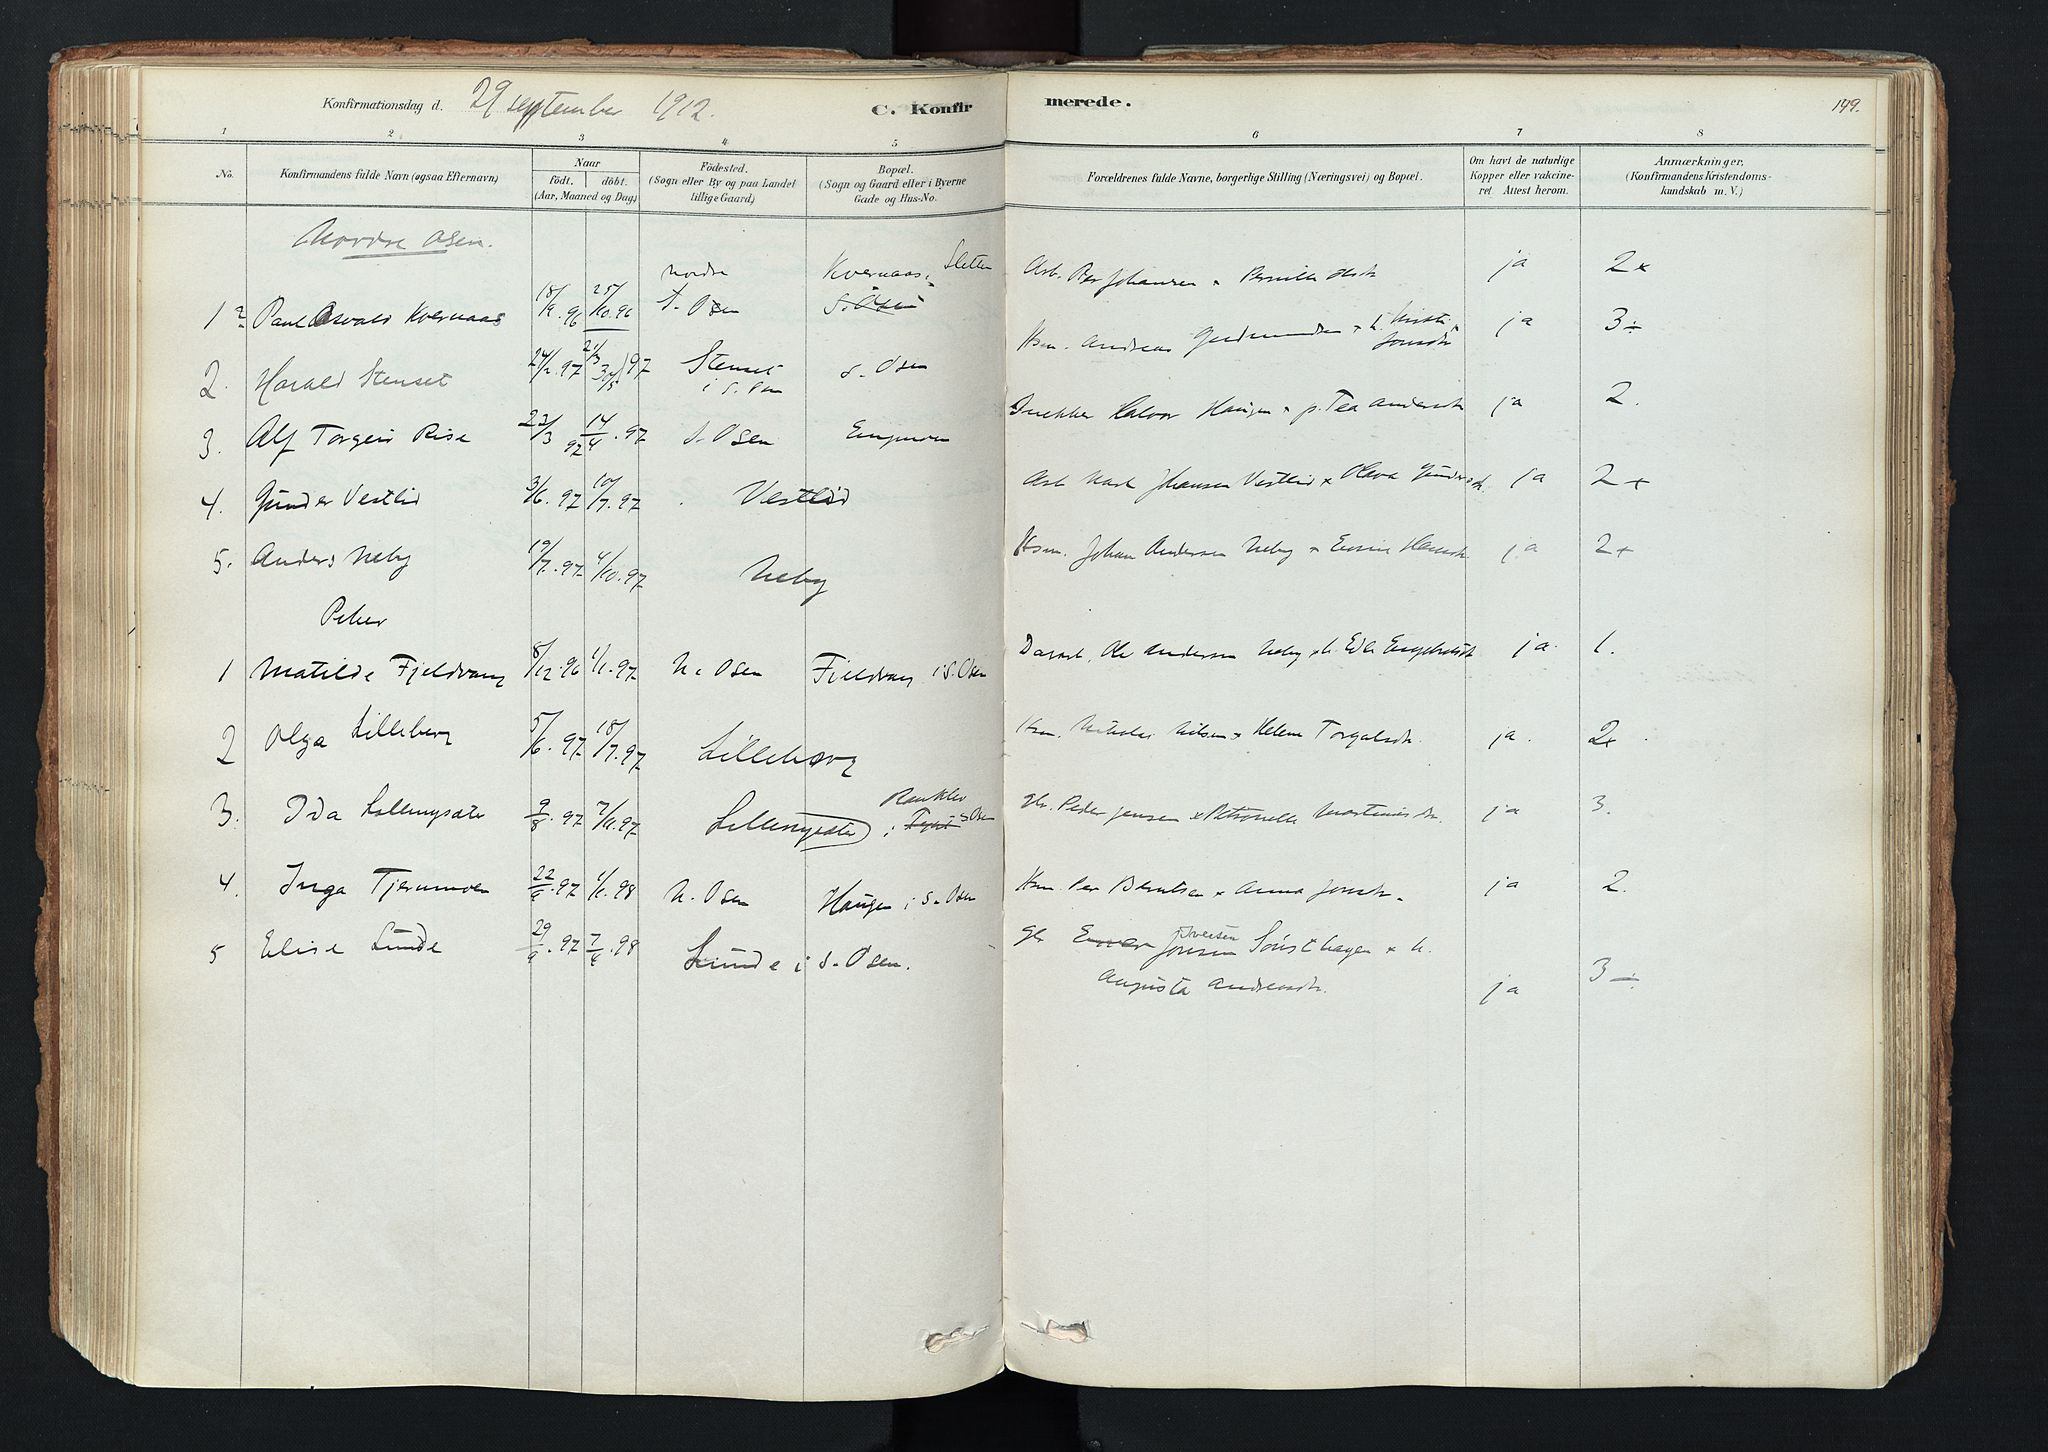 Konfirmationsdag d. 29 september 1912.
C. Konfir merede. 149.
1 2 3 4 5 6 7 8
No.
Konfirmandens fulde Navn (ogsaa Efternavn.)
Naar
födt. döbt.
(Aar, Maaned og Dag.)
Födested.
(Sogn eller By og paa Landet
tillige Gaard.)
Bopæl.
(Sogn og Gaard eller i Byerne
Gade og Hus-No.
Forældrenes fulde Navne, borgerlige Stilling (Næringsvei) og Bopæl.
Om havt de naturlige
Kopper eller vakcine-
ret. Attest herom.
Anmærkninger.
(Konfirmandens Kristendoms-
kundskab m. V.)
Nordre Osen.
1 Paul Osvald Kvernaas 18/9.96 25/10.96 nordre Osen Kvernaas, Sletten Arb. Per Johansen x Pernille ja 2x
2. Harald Stenset 24/2.97 21/3 30/5 97 Stenset i S. Osen S. Osen Hsm. Andreas Gudmundsen x Jonsdt ja 3÷
3. Alf Torgeir Rise 22/3 97 14/4.97 S. Osen Engmoen Snekker Halvor Haugen x p. Tea Andersdt ja 2.
4. Gunder Vestlid 3/6.97 10/7.97 Vestlid Arb Johansen Vestlid x Olava Gundersdt. ja 2+
5. Anders Neby 19/7.97 4/10.97 Neby Hsm. Johan Andersen Neby x ja 2+
Piker
1 Matilde Fjeldvang 8/12.96 1/1.97 N. Osen Fjeldvang i S. Osen Ole Andersen Neby ja. 1.
2 Olga Lilleberg 5/6.97 18/7.97 Lilleberg Hsm. Nilsen x Helene Torgalsdt. ja. 2x
3. Ida Lillenysæter 9/8.97 7/11.97 Lillenysæter i S Osen gbr. Peder Jensen x Petronelle ja 3.
4. Inga Tjernmoen 22/9.97 1/1.98 N. Osen Haugen i S. Osen Hsm. Per Berntsen x Anna Jonsdt. ja 2.
5 Elise Lunde 29/9.97 7/4.98 Lunde i S. Osen. gbr Jonsen Iversen Sønsthagen x h.
Augusta Andreasdt. ja 3÷